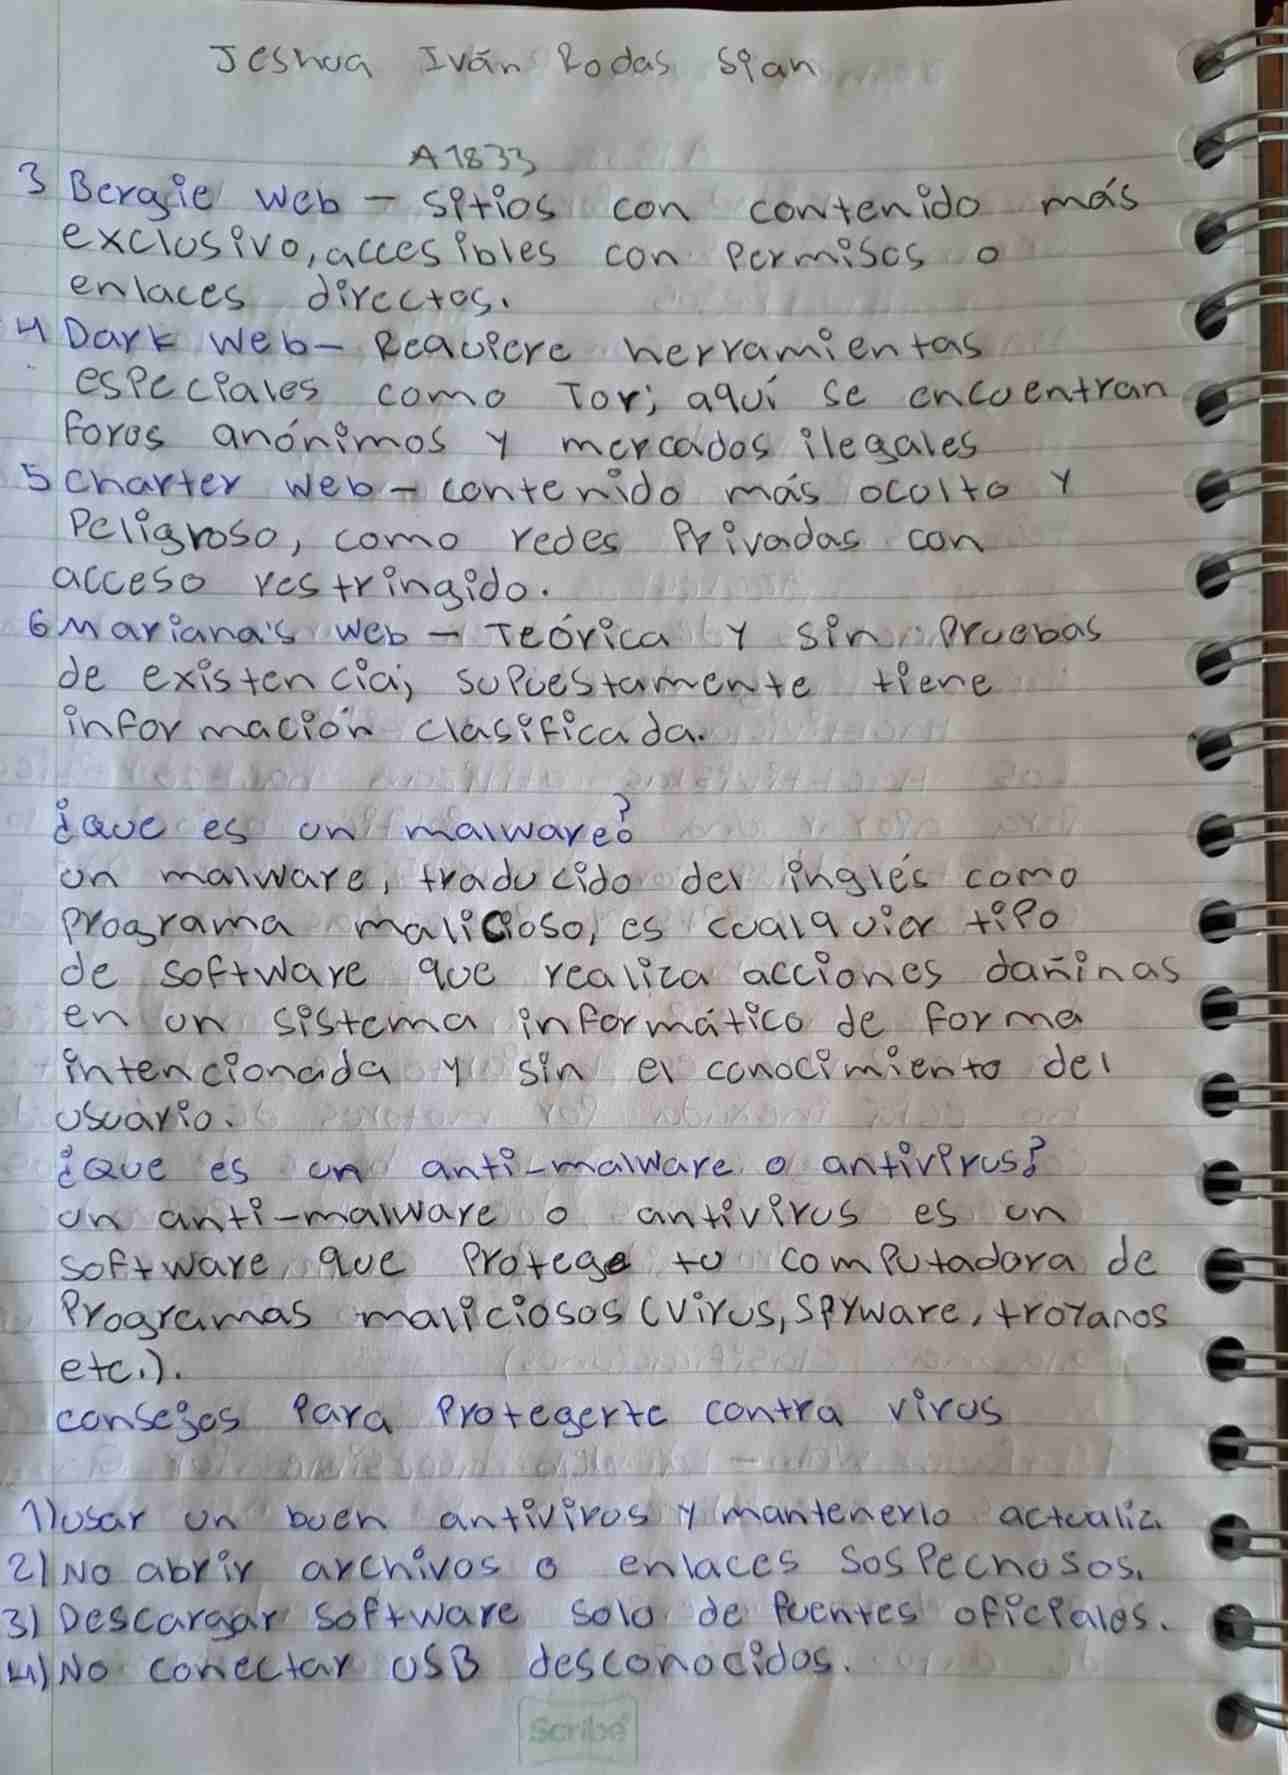 Jeshua Iván Rodas Sian
A1833
3 Bergie web - sitios con contenido más
exclusivo, accesibles con permisos o
enlaces directos.
4 Dark web - Requiere herramientas
especiales como Tor; aquí se encuentran
foros anónimos y mercados ilegales
5 charter web - contenido más oculto y
peligroso, como redes privadas con
acceso restringido.
6 Mariana's web - Teórica y sin pruebas
de existencia; supuestamente tiene
información clasificada.
¿que es un malware?
un malware, traducido del inglés como
programa malicioso, es cualquier tipo
de software que realiza acciones dañinas
en un sistema informático de forma
intencionada y sin el conocimiento del
usuario.
¿que es un anti-malware o antivirus?
un anti-malware o antivirus es un
software que protege tu computadora de
programas maliciosos (virus, spyware, troyanos
etc.).
consejos para protegerte contra virus
1) usar un buen antivirus y mantenerlo actualiz.
2) No abrir archivos o enlaces sospechosos.
3) Descargar software solo de fuentes oficiales.
4) No conectar USB desconocidos.
Scribe